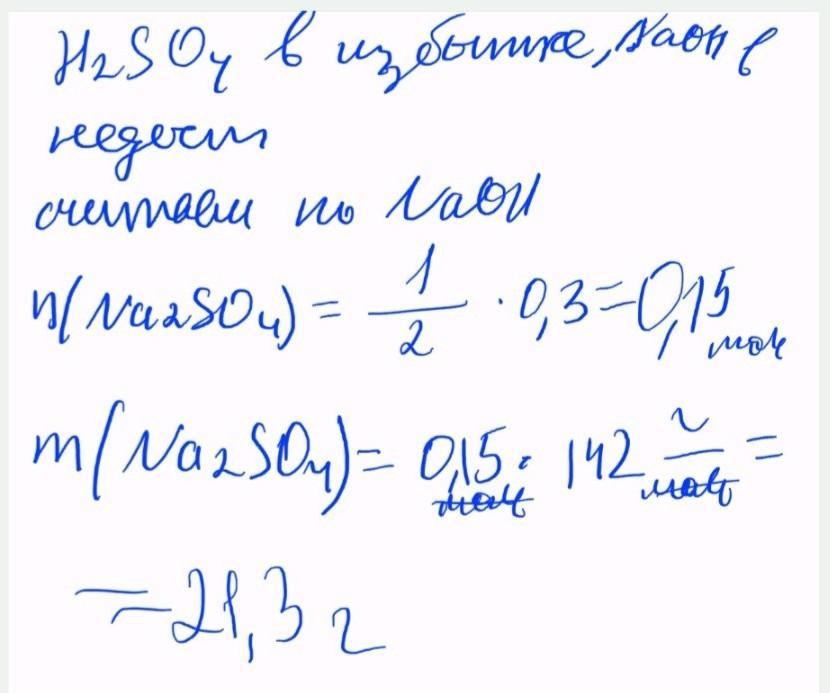 H₂SO₄ в избытке, NaOH в
недост
считаем по NaOH
n(Na₂SO₄) = 1/2 · 0,3 = 0,15 моль
m(Na₂SO₄) = 0,15 моль · 142 г/моль =
= 21,3 г